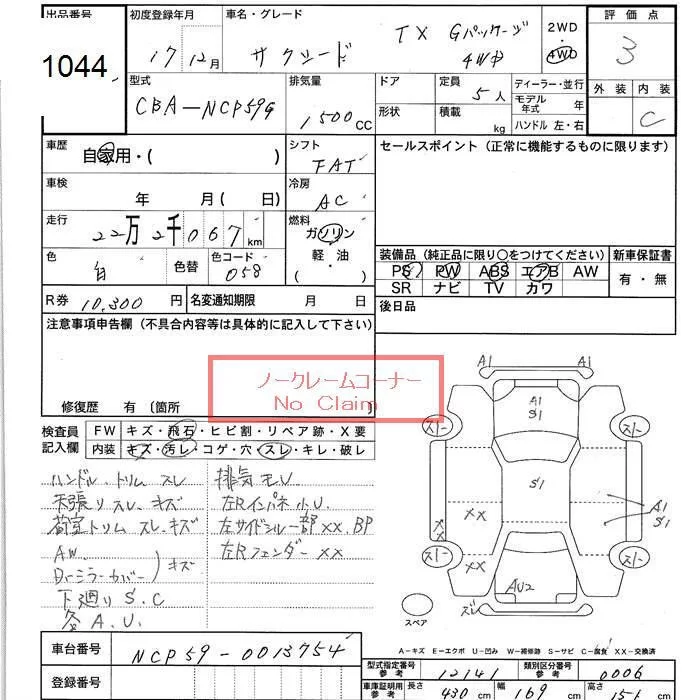 出品番号 初度登録年月 車名・グレード 評価点
1044
17年 12月 サクシード TX Gパッケージ 4WD
2WD・4WD
3
型式 排気量 ドア 定員 ディーラー・並行 外装 内装
CBA-NCP59G 1500CC 5人 モデル年式 年
形状 積載 kg ハンドル 左・右 C
車歴 シフト セールスポイント (正常に機能するものに限ります)
自家用・( ) FAT
車検 冷房
年 月( 日) AC
走行 燃料
22万2千067km ガソリン
軽・油
( )
装備品 (純正品に限り○をつけてください) 新車保証書
色 色替 色コード
白 058
PS PW ABS エアB AW 有・無
SR ナビ TV カワ
R券 10,300円 名変通知期限 月 日 後日品
注意事項申告欄 (不具合内容等は具体的に記入して下さい)
ノークレームコーナー
No Claim
修復歴 有 (箇所
検査員記入欄 FW キズ・飛石・ヒビ割・リペア跡・X要
内装 キズ・汚レ・コゲ・穴・スレ・キレ・破レ
ハンドル.トリム スレ 排気モレ
天張り スレ.キズ 左Rインパネ 小U.
荷室トリム スレ.キズ 左サイドシル一部XX.BP
AW. 左Rフェンダー XX
Drミラーカバー) キズ
下廻り S.C
各 A.U.
A1 A1
A1
S1
スト スト
S1
A1
S1
XX
XX
XX
スト スト
AU2
スレ
スペア
A-キズ E-エクボ U-凹み W-補修跡 S-サビ C-腐食 XX-交換済
車台番号 NCP59-0013754
登録番号
型式指定番号 参考 12141 類別区分番号 参考 0006
車庫証明用 参考 長さ 430cm 幅 169cm 高さ 151cm